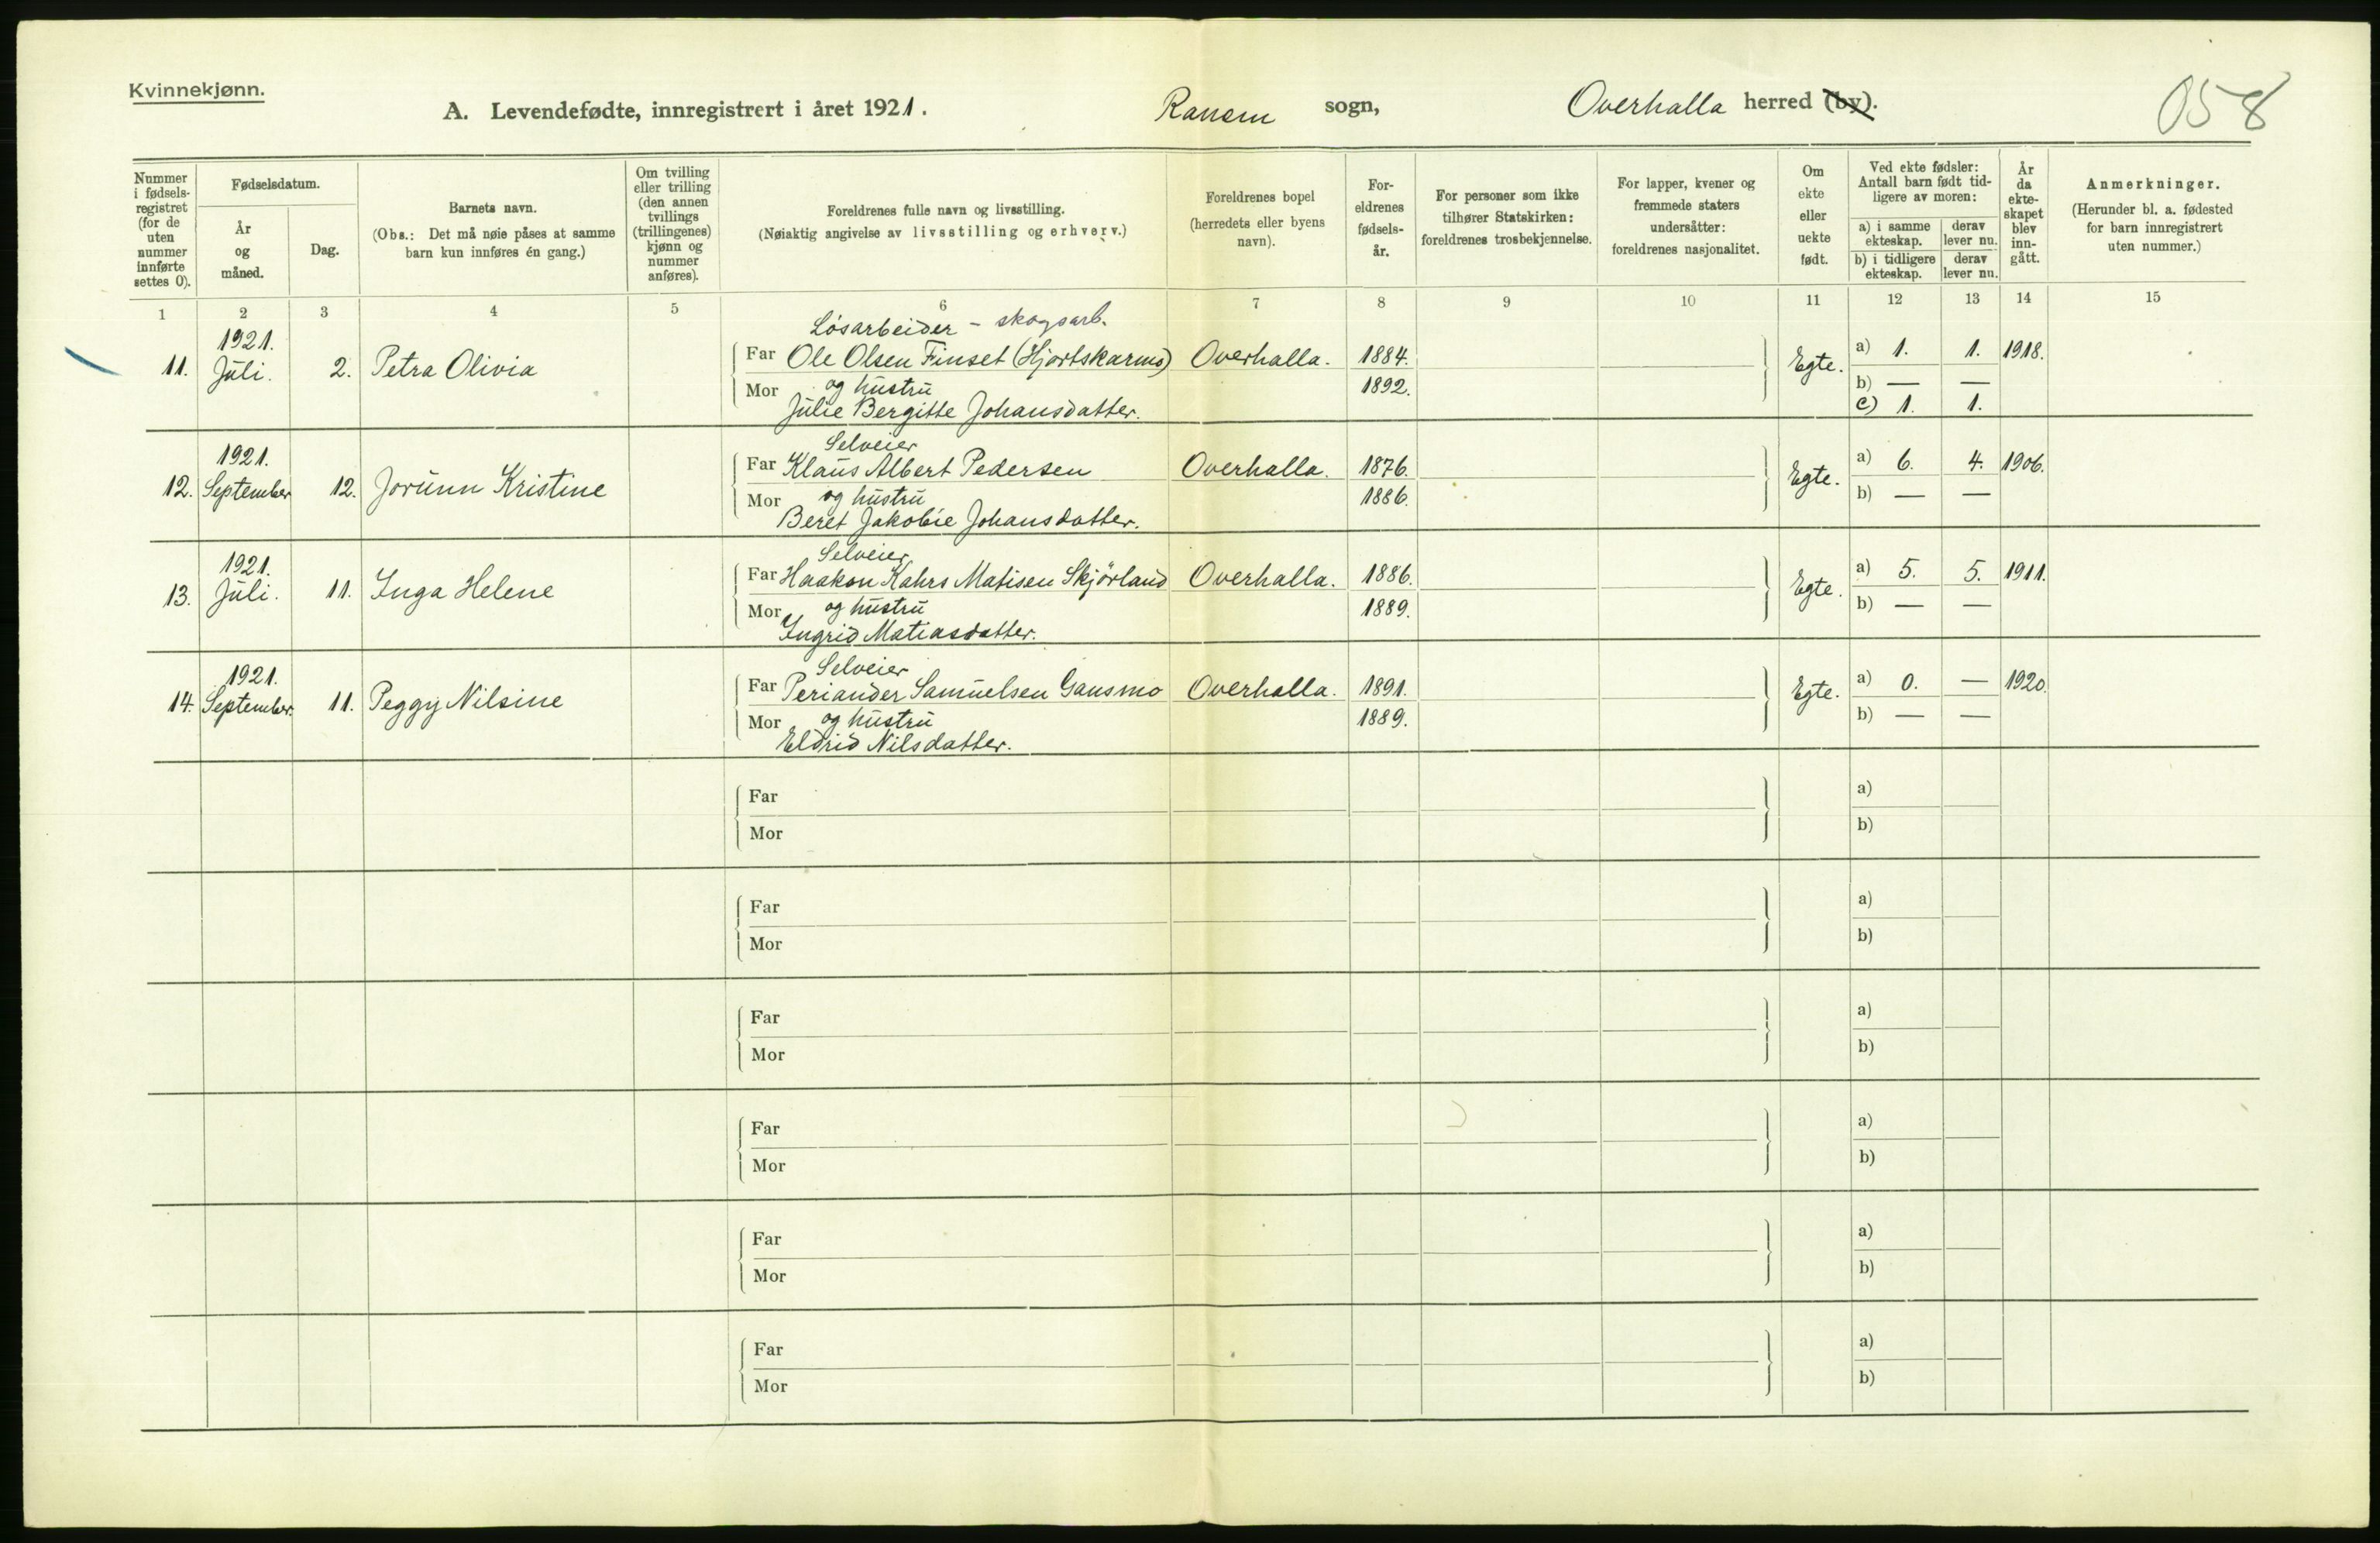 Kvinnekjønn.
A. Levendefødte, innregistrert i året 1921. Ranem sogn, Overhalla herred (by).
058
Nummer i fødsels-registret (for de uten nummer innførte settes 0).
Fødselsdatum.
År og måned.
Dag.
Barnets navn.
(Obs.: Det må nøie påses at samme barn kun innføres én gang.)
Om tvilling eller trilling (den annen tvillings (trillingenes) kjønn og nummer anføres).
Foreldrenes fulle navn og livsstilling.
(Nøiaktig angivelse av livsstilling og erhverv.)
Foreldrenes bopel
(herredets eller byens navn).
For-eldrenes fødsels-år.
For personer som ikke tilhører Statskirken: foreldrenes trosbekjennelse.
For lapper, kvener og fremmede staters undersåtter: foreldrenes nasjonalitet.
Om ekte eller uekte født.
Ved ekte fødsler: Antall barn født tid-ligere av moren:
a) i samme ekteskap.
derav lever nu.
b) i tidligere ekteskap.
derav lever nu.
År da ekte-skapet blev inn-gått.
Anmerkninger.
(Herunder bl. a. fødested for barn innregistrert uten nummer.)
1 2 3 4 5 6 7 8 9 10 11 12 13 14 15
Løsarbeider - skogsarb.
11. 1921. Juli. 2. Petra Olivia Far Ole Olsen Finset (Hjortskarmo) Overhalla. 1884. Egte. a) 1. 1. 1918.
Mor og hustru 1892. b) — —
Julie Bergitte Johansdatter. c) 1. 1.
Selveier
12. 1921. September 12. Jorunn Kristine Far Klaus Albert Pedersen Overhalla. 1876. Egte. a) 6. 4. 1906.
Mor og hustru 1886. b) — —
Beret Jakobie Johansdatter.
Selveier
13. 1921. Juli. 11. Inga Helene Far Haakon Kahrs Matisen Skjörland Overhalla. 1886. Egte. a) 5. 5. 1911.
Mor og hustru 1889. b) — —
Ingrid Matiasdatter.
Selveier
14. 1921. September. 11. Peggy Nilsine Far Periander Samuelsen Gansmo Overhalla. 1891. Egte. a) 0. — 1920.
Mor og hustru 1889. b) — —
Eldrid Nilsdatter.
Far a)
Mor b)
Far a)
Mor b)
Far a)
Mor b)
Far a)
Mor b)
Far a)
Mor b)
Far a)
Mor b)